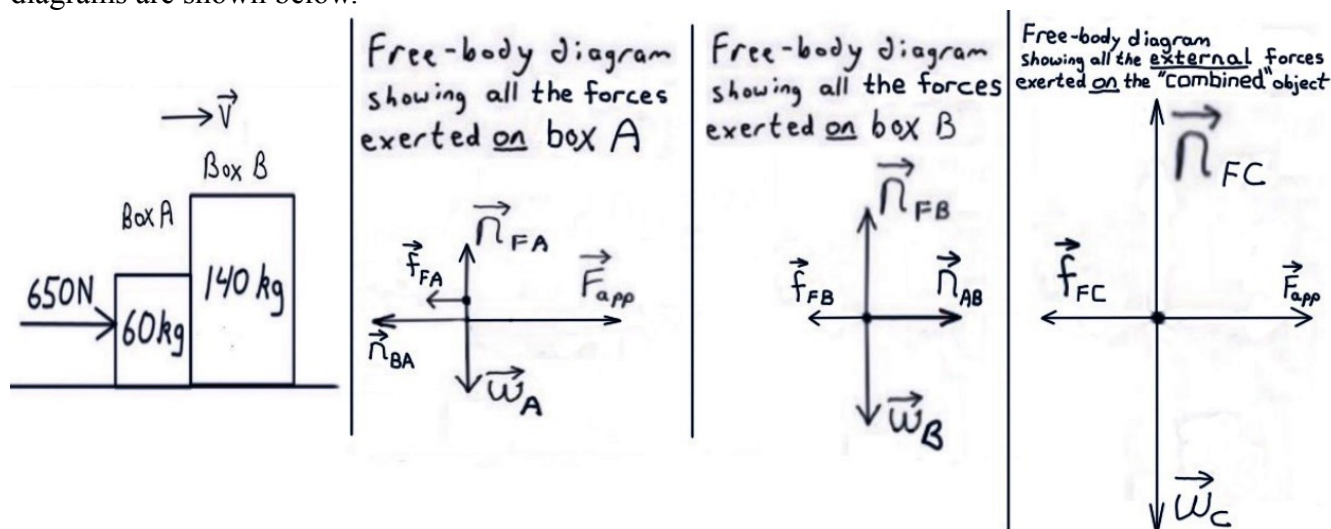 diagrams are shown below.
→V
Box B
Box A
650N
60kg
140kg
Free-body diagram
showing all the forces
exerted on box A
n⃗ FA
f⃗ FA
F⃗ app
n⃗ BA
w⃗ A
Free-body diagram
showing all the forces
exerted on box B
n⃗ FB
f⃗ FB
n⃗ AB
w⃗ B
Free-body diagram
showing all the external forces
exerted on the "combined" object
n⃗ FC
f⃗ FC
F⃗ app
w⃗ C